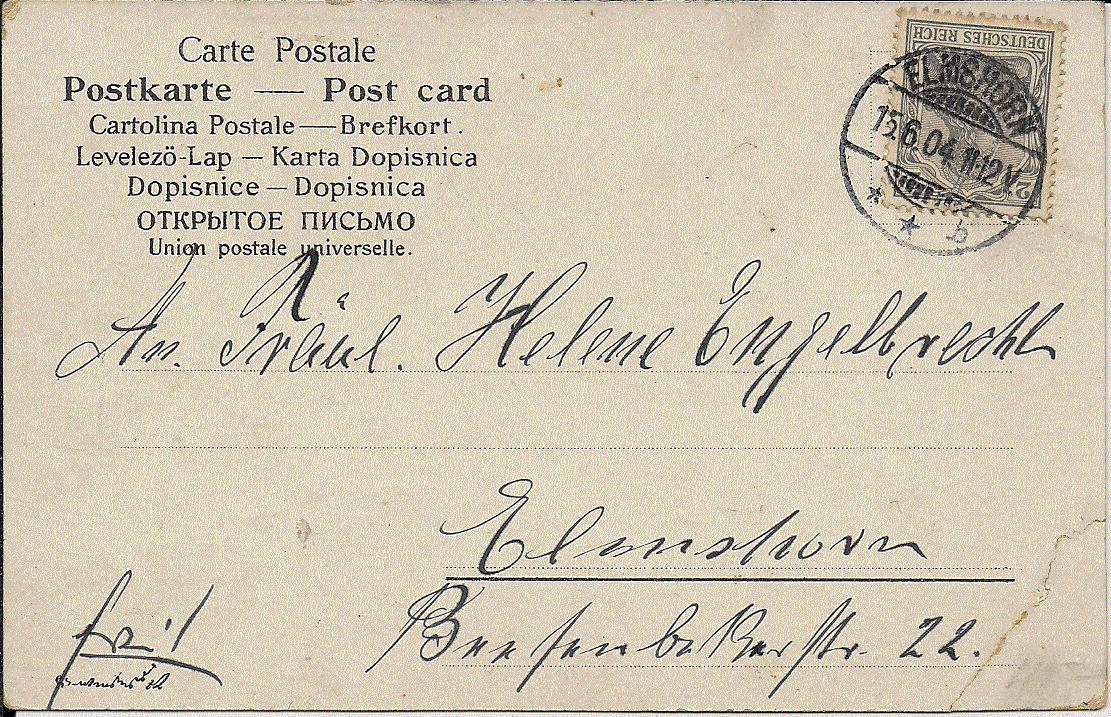 Carte Postale
Postkarte — Post card
Cartolina Postale — Brefkort.
Levelező-Lap — Karta Dopisnica
Dopisnice — Dopisnica
ОТКРЫТОЕ ПИСЬМО
Union postale universelle.
DEUTSCHES REICH
2
ELMSHORN
15.6.04. 11-12 V.
* * b
An. Fräul. Helene Engelbrecht
Elmshorn
str. 22.
frei!